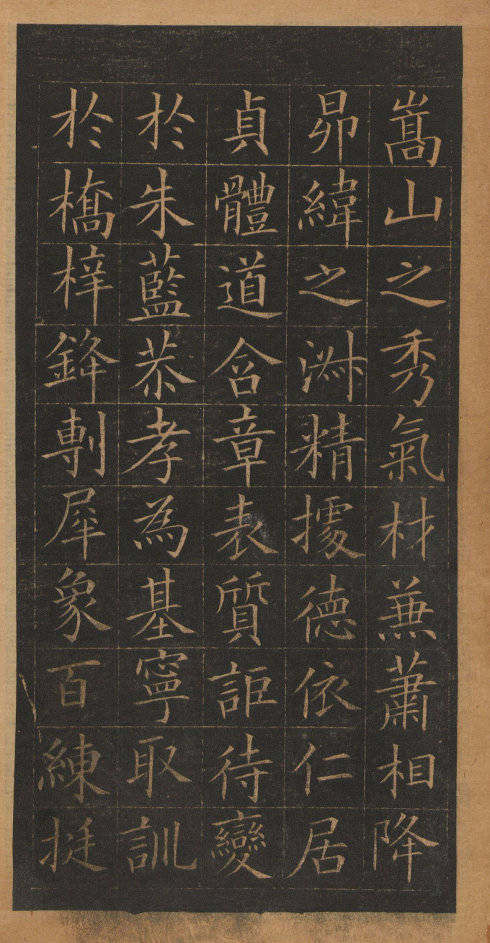 嵩山之秀氣材兼蕭相降
昴緯之淑精據德依仁居
貞體道含章表質詎待變
於朱藍恭孝為基寧取訓
於橋梓鋒剸犀象百練挺